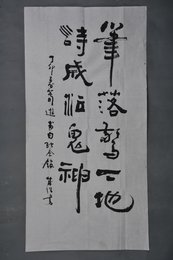 筆落驚天地
詩成泣鬼神
丁卯春 遊 白紀念館 書